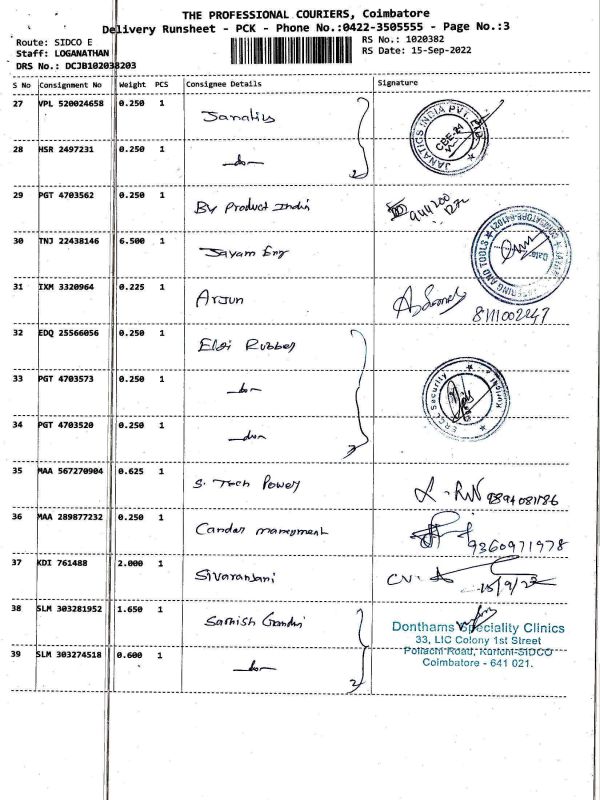 THE PROFESSIONAL COURIERS, Coimbatore
Delivery Runsheet - PCK - Phone No.:0422-3505555 - Page No.:3
Route: SIDCO E
RS No.: 1020382
Staff: LOGANATHAN
RS Date: 15-Sep-2022
DRS No.: DCJB102038203
S No Consignment No Weight PCS Consignee Details Signature
27 VPL 520024658 0.250 1 Janatics
JANATICS INDIA PVT LTD
28 HSR 2497231 0.250 1 -do-
2
29 PGT 4703562 0.250 1 By Product India
30 TNJ 22438146 6.500 1 Jayam Eng
31 IXM 3320964 0.225 1 Arjun
8111002247
32 EDQ 25566056 0.250 1 Elgi Rubber
33 PGT 4703573 0.250 1 -do-
Security
34 PGT 4703520 0.250 1 -do-
3
35 MAA 567270904 0.625 1 S. Tech Power
36 MAA 289877232 0.250 1
9360971978
37 KDI 761488 2.000 1 Sivaranjani
15/9/22
38 SLM 303281952 1.650 1 Sathish Gandhi
Donthams Speciality Clinics
33, LIC Colony 1st Street
Pollachi Road, Kurichi-SIDCO
Coimbatore - 641 021.
39 SLM 303274518 0.600 1 -do-
2